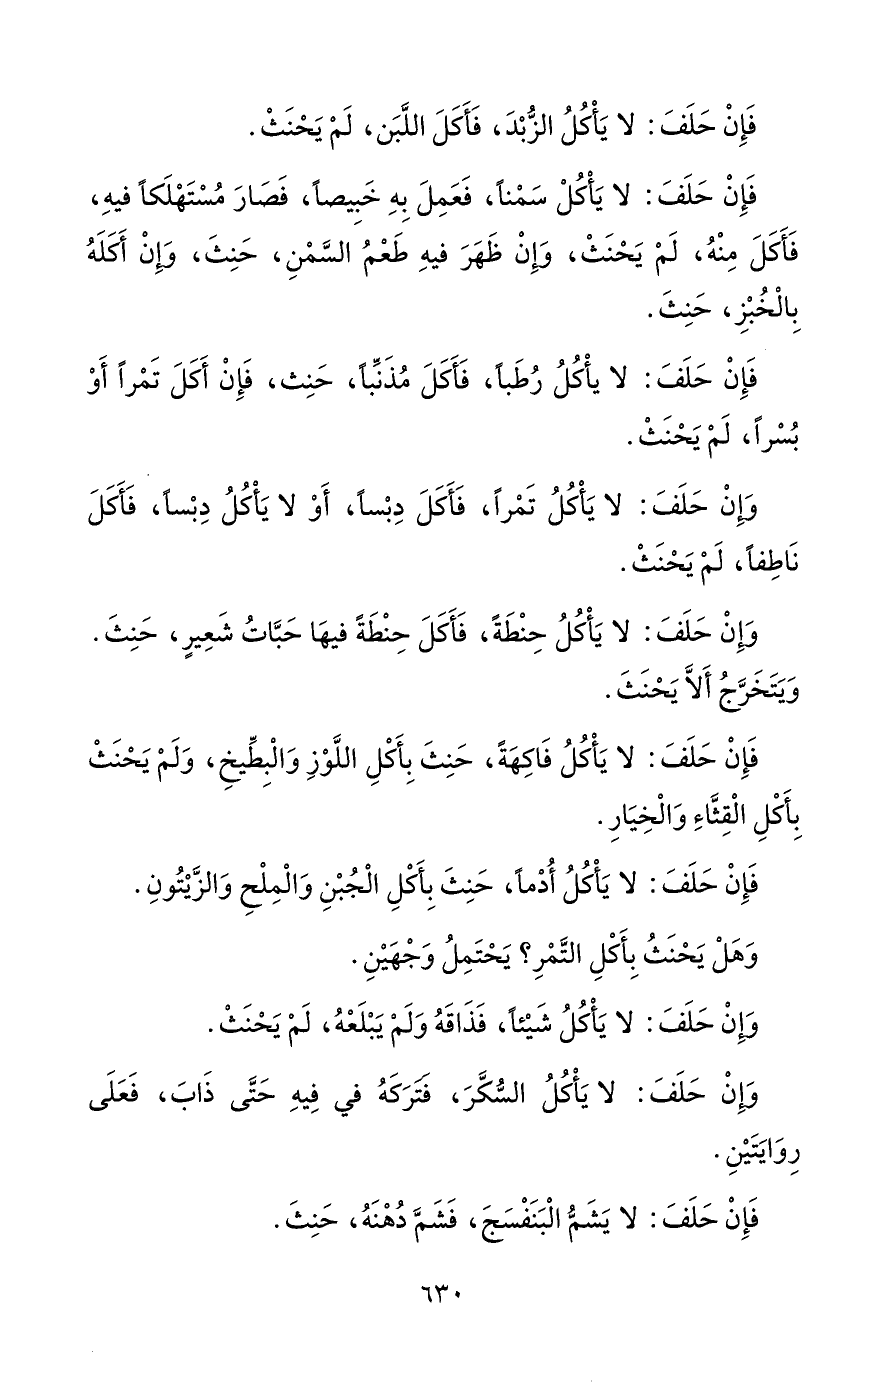 فَإِنْ حَلَفَ: لا يَأْكُلُ الزُّبْدَ، فَأَكَلَ اللَّبَن، لَمْ يَحْنَثْ.
فَإِنْ حَلَفَ: لا يَأْكُلْ سَمْناً، فَعَمِلَ بِهِ خَبِيصاً، فَصَارَ مُسْتَهْلَكاً فيهِ،
فَأَكَلَ مِنْهُ، لَمْ يَحْنَثْ، وَإِنْ ظَهَرَ فيهِ طَعْمُ السَّمْنِ، حَنِثَ، وَإِنْ أَكَلَهُ
بِالْخُبْزِ، حَنِثَ.
فَإِنْ حَلَفَ: لا يأْكُلُ رُطَباً، فَأَكَلَ مُذَنِّباً، حَنِث، فَإِنْ أَكَلَ تَمْراً أَوْ
بُسْراً، لَمْ يَحْنَثْ.
وَإِنْ حَلَفَ: لا يَأْكُلُ تَمْراً، فَأَكَلَ دِبْساً، أَوْ لا يَأْكُلُ دِبْساً، فَأَكَلَ
نَاطِفاً، لَمْ يَحْنَثْ.
وَإِنْ حَلَفَ: لا يَأْكُلُ حِنْطَةً، فَأَكَلَ حِنْطَةً فيهَا حَبَّاتُ شَعِيرٍ، حَنِثَ.
وَيَتَخَرَّجُ أَلاَّ يَحْنَثَ.
فَإِنْ حَلَفَ: لا يَأْكُلُ فَاكِهَةً، حَنِثَ بِأَكْلِ اللَّوْزِ وَالْبِطِّيخِ، وَلَمْ يَحْنَثْ
بِأَكْلِ الْقِثَّاءِ وَالْخِيَارِ.
فَإِنْ حَلَفَ: لا يَأْكُلُ أُدْماً، حَنِثَ بِأَكْلِ الْجُبْنِ وَالْمِلْحِ وَالزَّيْتُونِ.
وَهَلْ يَحْنَثُ بِأَكْلِ التَّمْرِ؟ يَحْتَمِلُ وَجْهَيْنِ.
وَإِنْ حَلَفَ: لا يَأْكُلُ شَيْئاً، فَذَاقَهُ وَلَمْ يَبْلَعْهُ، لَمْ يَحْنَثْ.
وَإِنْ حَلَفَ: لا يَأْكُلُ السُّكَّرَ، فَتَرَكَهُ في فِيهِ حَتَّى ذَابَ، فَعَلَى
رِوَايَتَيْنِ.
فَإِنْ حَلَفَ: لا يَشَمُّ الْبَنَفْسَجَ، فَشَمَّ دُهْنَهُ، حَنِثَ.
٦٣٠